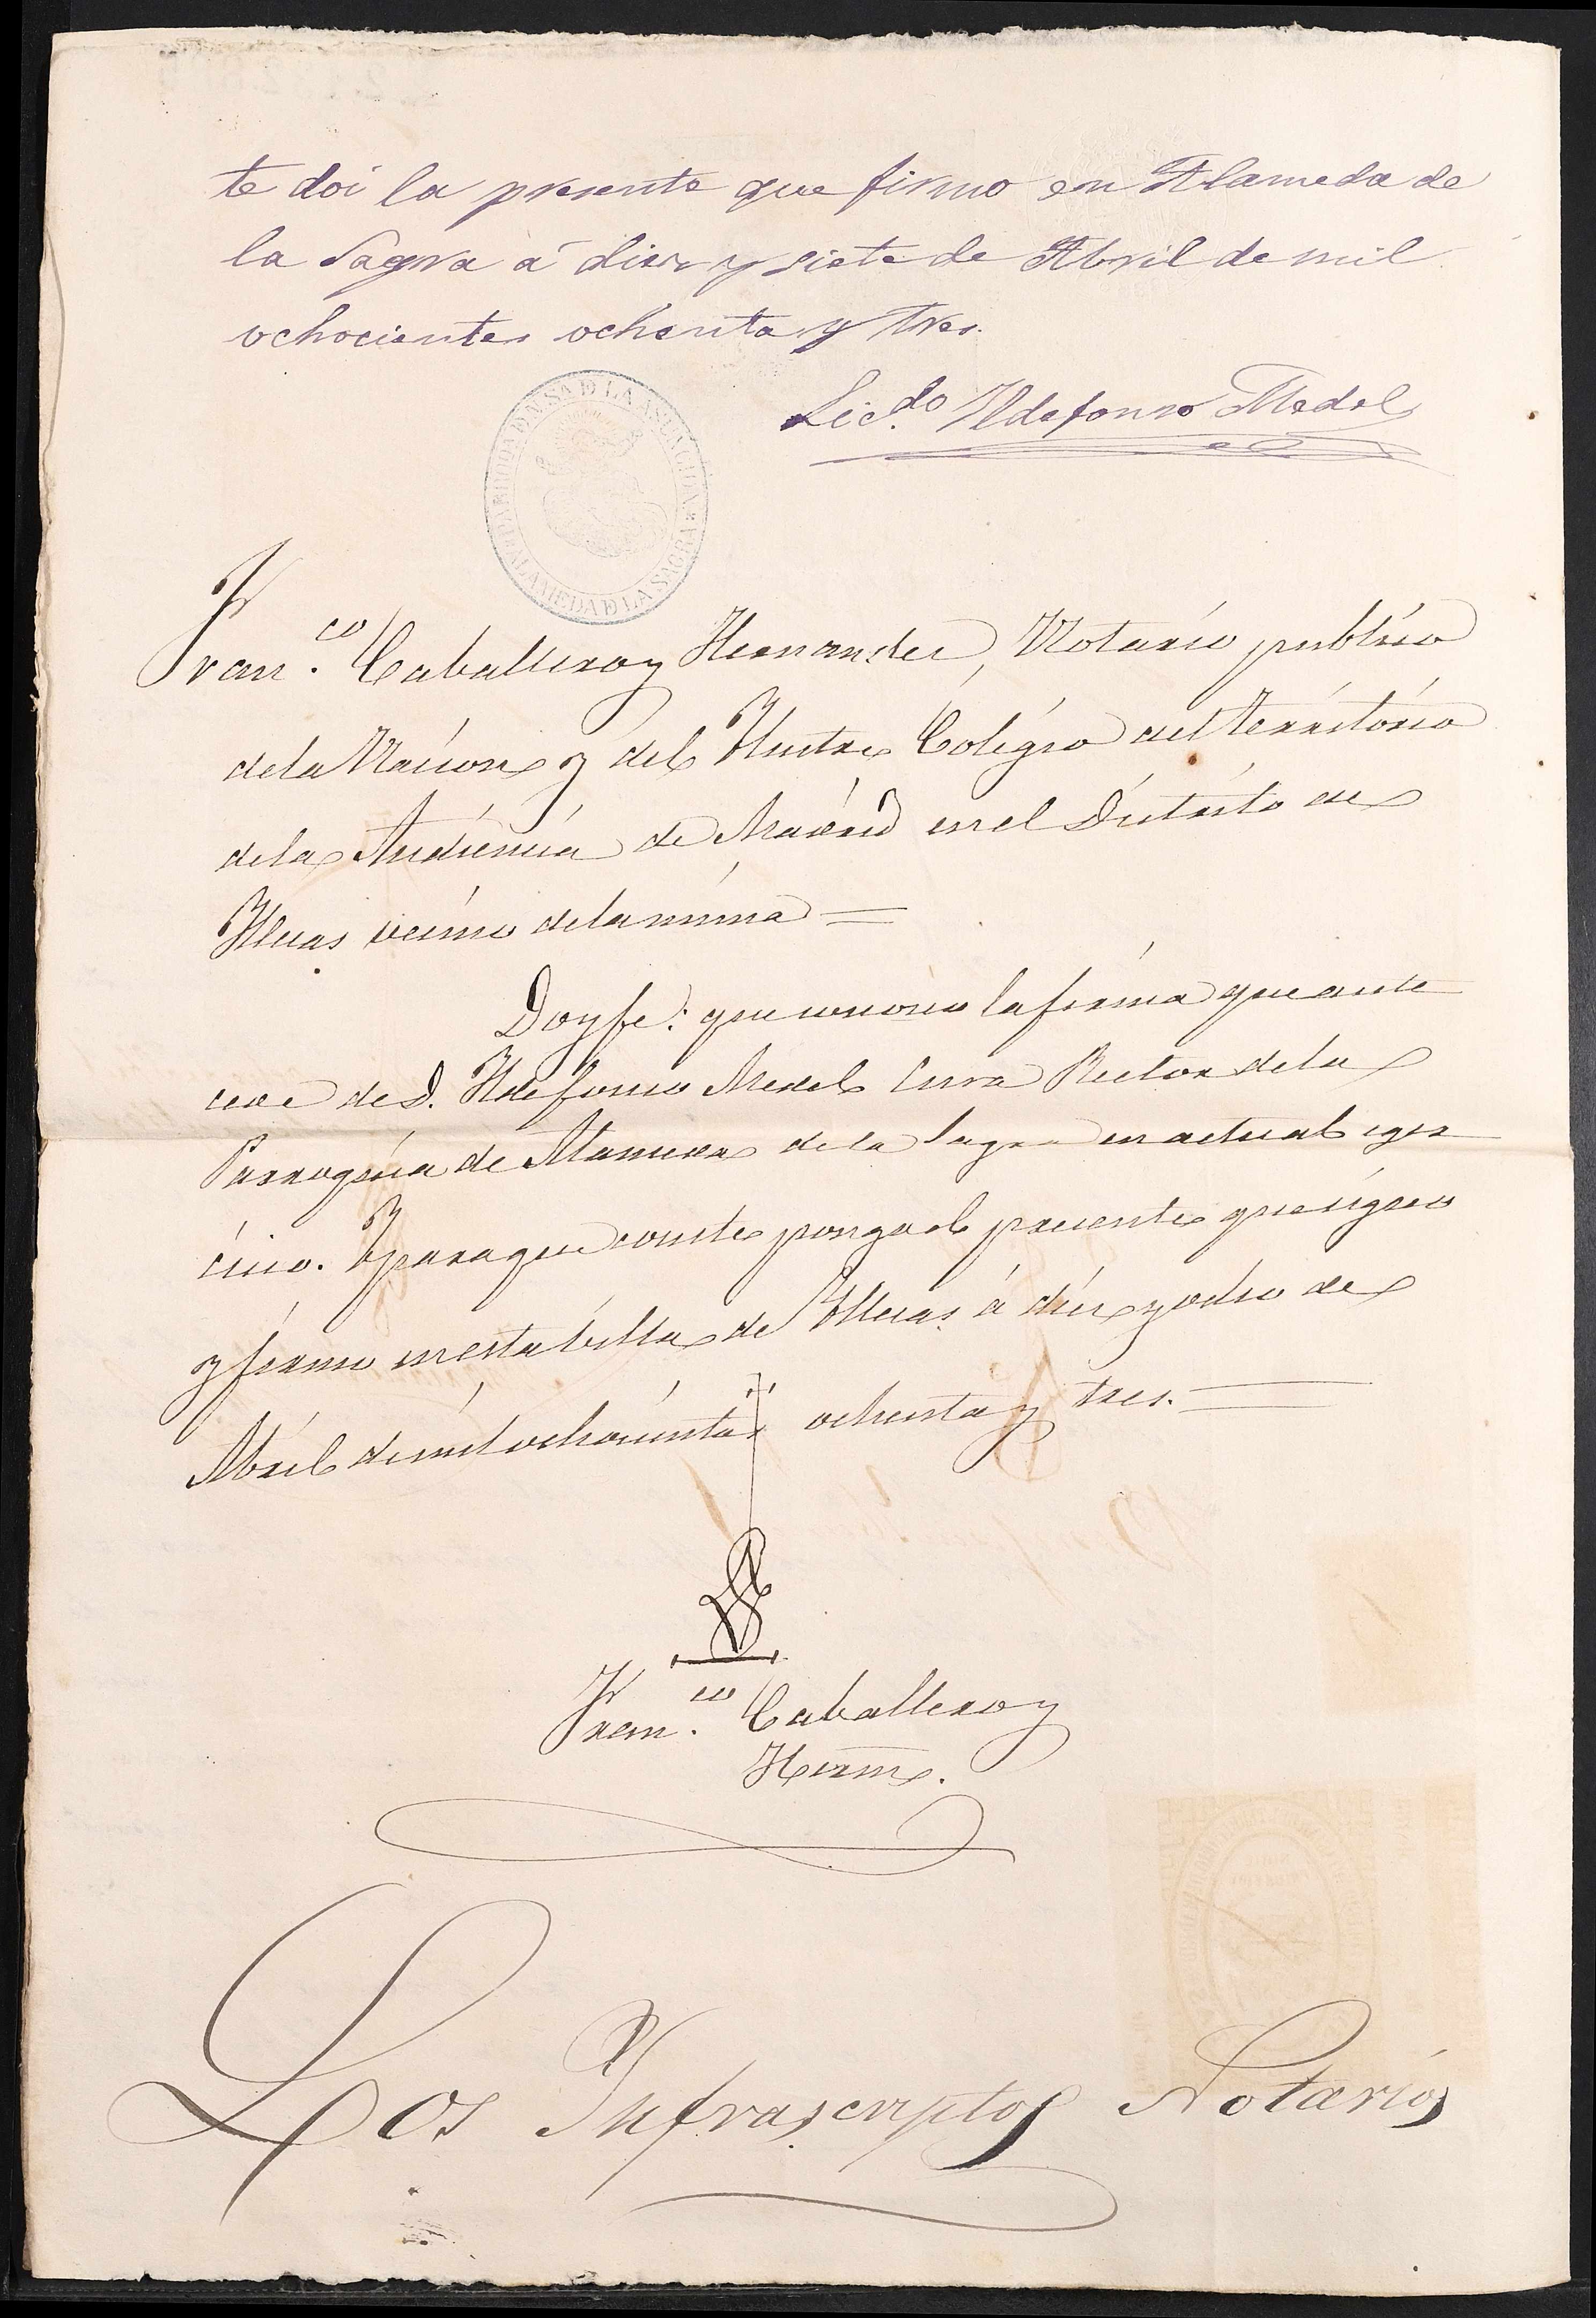 te doi la presente que firmo en Alameda de
la Sagra á diez y siete de Abril de mil
ochocientos ochenta y tres.
Licdo. Ildefonso Medel
PARROQUIA DE N. SA. D LA ASUNCION
DE ALAMEDA D LA SAGRA
Franco. Caballero y Hernandez, Notario público
de la Nacion y del Ilustre Colegio del territorio
de la Audiencia de Madrid en el Distrito de
Illescas vecino de la misma =
Doy fe: que conozco la firma que ante
cede de D. Ildefonso Medel Cura Rector de la
Parroquia de Alameda de la Sagra en actual eger
cicio. Y para que conste pongo el presente que signo
y firmo en esta billa de Illescas á diez y ocho de
Abril de mil ochocientos ochenta y tres. =
Franco. Caballero y
Hernz.
Los Infrascriptos Notarios